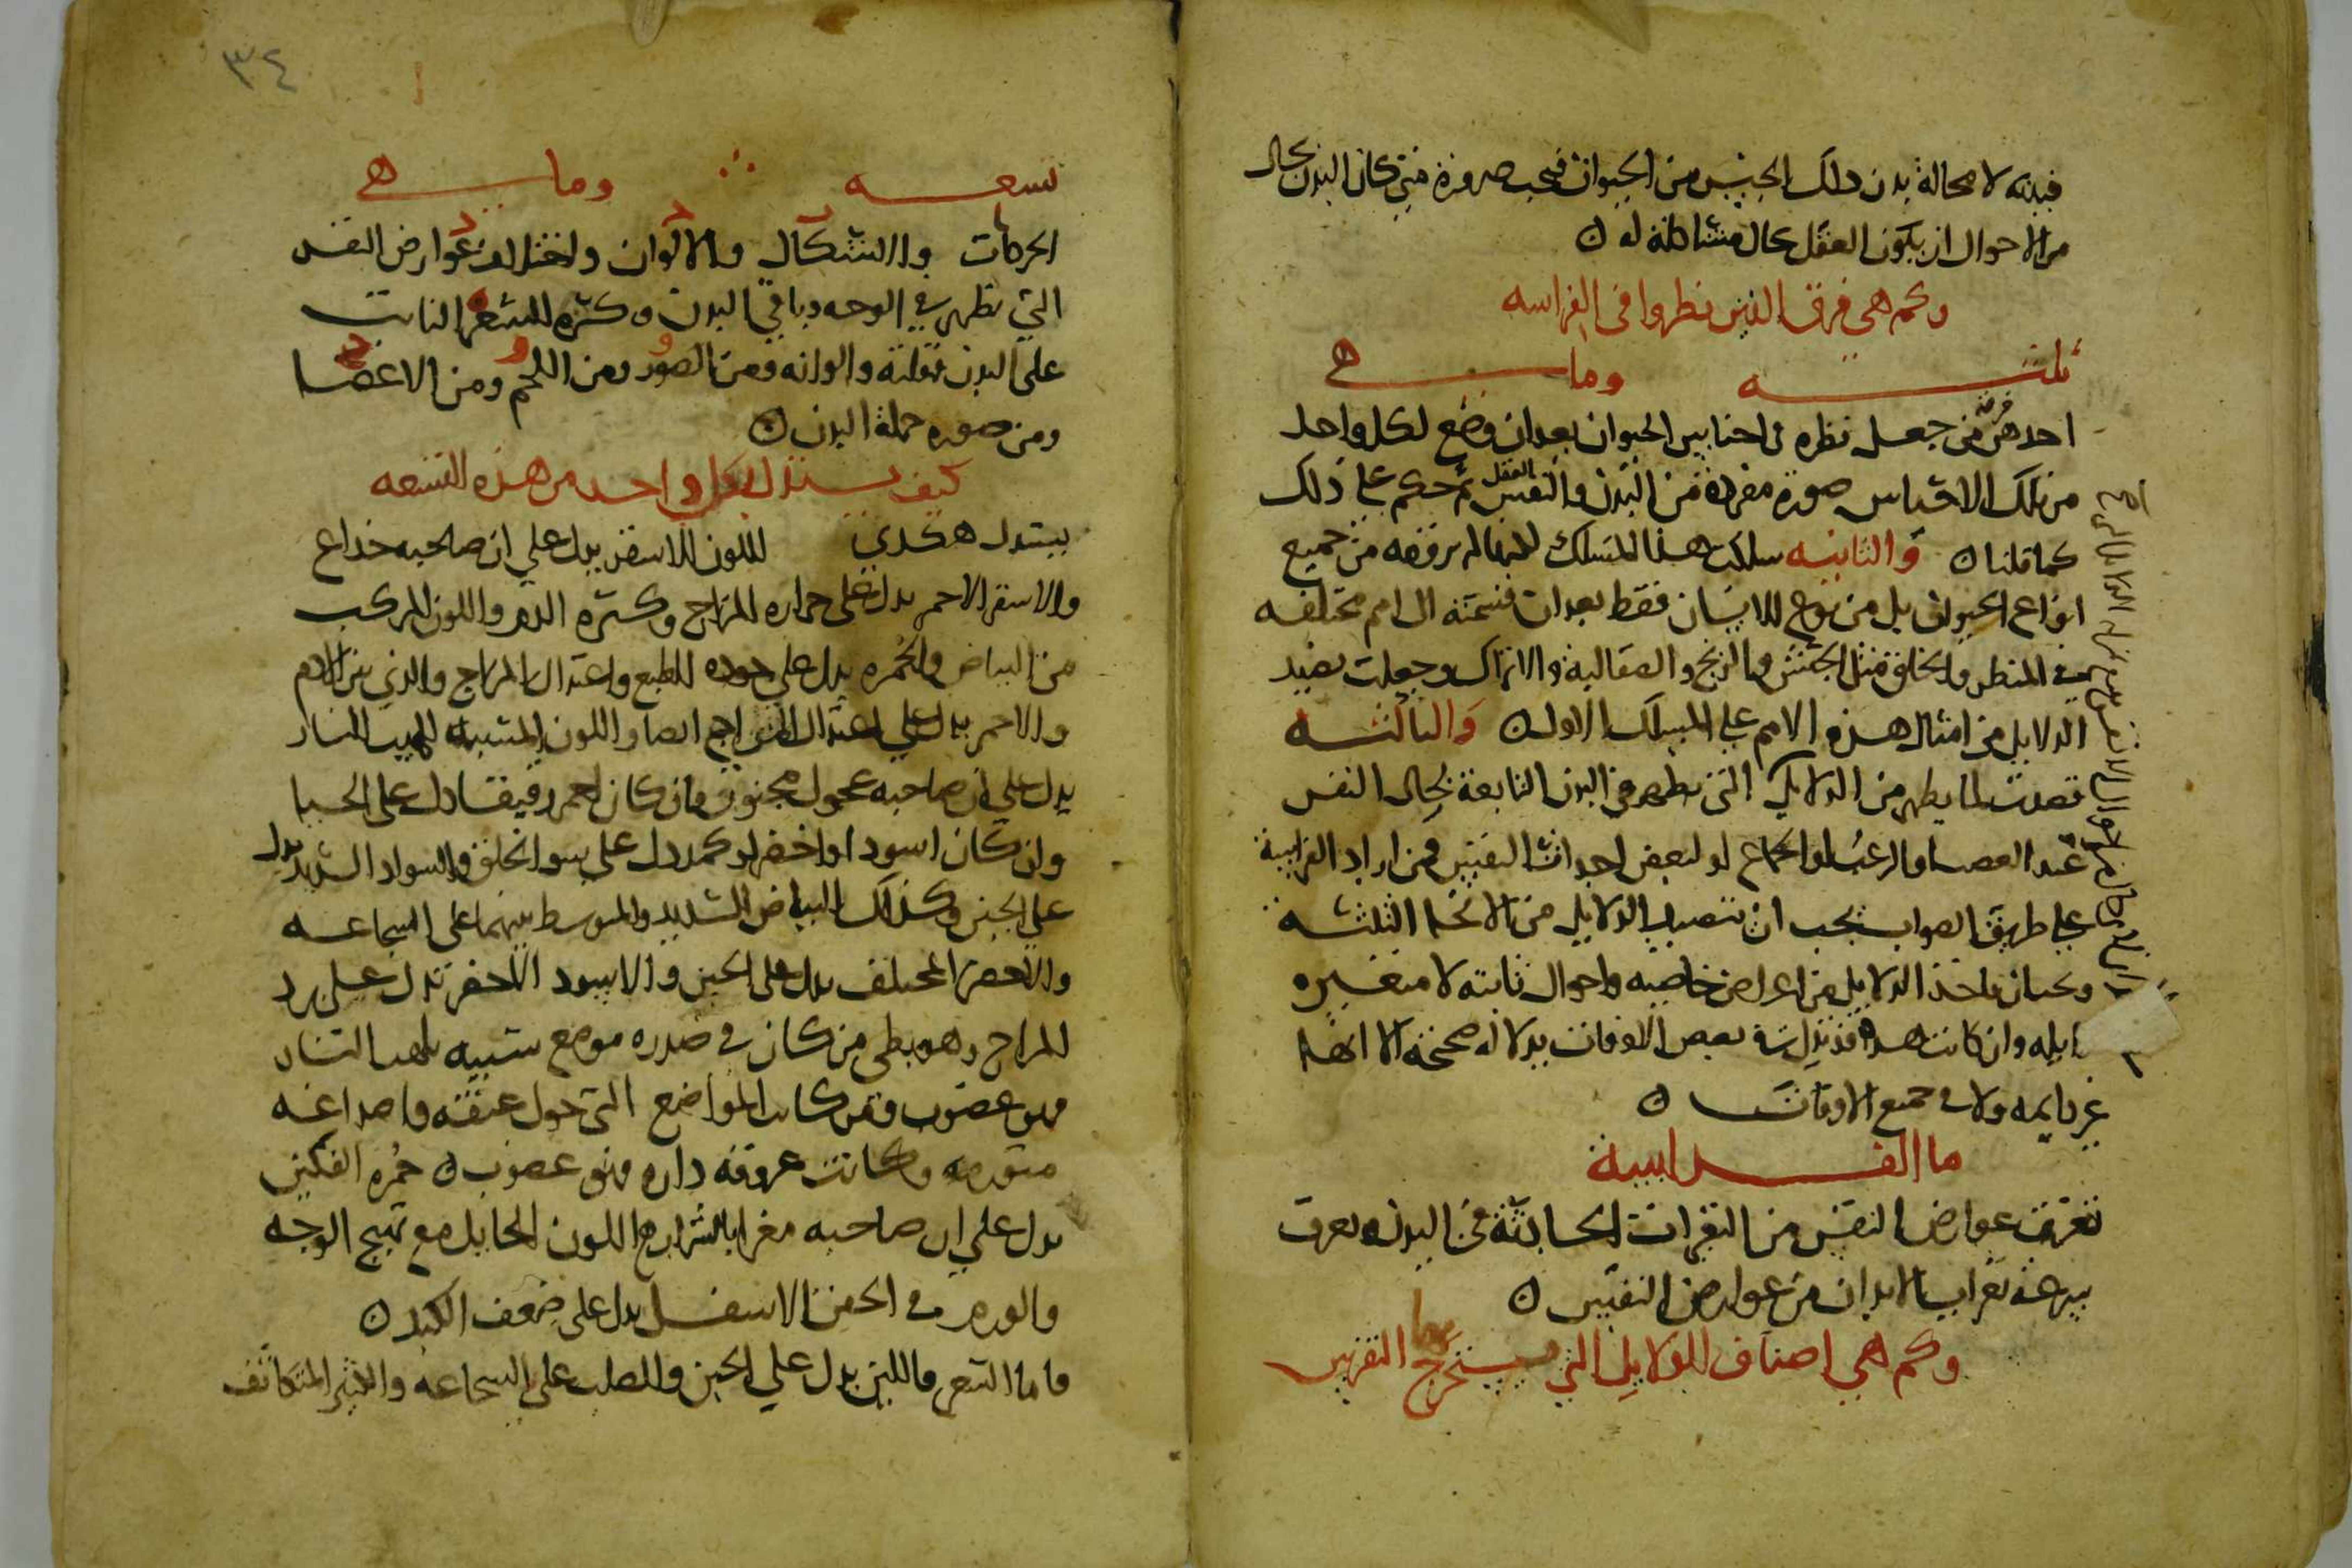 فبدنه لا محالة بدن ذلك الجنس من الحيوان فيجب ضرورة متى كان البدن بحال
من الاحوال ان يكون العقل بحال مشاكلة له ن
وكم هي فرق الذين نظروا في الفراسه
ثلثه وما هي
احدهن من جعل نظره في اجناس الحيوان بعد ان وضع لكل واحد
من تلك الاجناس صورة مفردة من البدن والنفس ثم حكم على ذلك
العقل
كما قلنا ن والثانيه سلكت هذا المسلك الا انها لم ترفعه من جميع
انواع الحيوان بل من نوع الانسان فقط بعد ان قسمته الى امم مختلفه
في المنظر والخلق مثل الحبش والزنج والصقالبة والاتراك وجعلت تصيد
الدلايل من امثال هذه الامم على المسلك الاول ن والثالثه
قصدت لما يظهر من الدلايل التي تظهر في البدن التابعة لحال النفس
عند الغضب والرعب والجماع او لبعض احداث النفس ومن اراد الفراسة
على طريق الصواب يجب ان يتصيد الدلايل من الانحا الثلثه
ويجب ان ياخذ الدلايل من اعراض خاصيه واحوال ثابته لا متغيره
زايله وان كانت هذه قد تدل في بعض الاوقات بدلاله صحيحة الا انها
غير دايمه ولا في جميع الاوقات ن
ما الفراسة
تعرف عوارض النفس من التغيرات الحادثة في البدن وتعرف
سرعة تغاير الابدان من عوارض النفس ن
وكم هي اصناف الدلايل التي يستخرج بها التفرس
٣٤
تسعه وما هي
الحركات والاشكال والالوان واختلاف عوارض النفس
التي تظهر في الوجه وباقي البدن وكثرة الشعر النابت
على البدن وقلته والوانه ومن الصور ومن اللحم ومن الاعضا
ومن صوره جملة البدن ن
كيف يستدل بكل واحد من هذه التسعه
يستدل هكذي اللون الاشقر يدل على ان صاحبه خداع
والاشقر الاحمر يدل على حراره المزاج وكثره الدم واللون المركب
من البياض والحمره يدل على جوده الطبع واعتدال المزاج والذي بين الادم
والاحمر يدل على اعتدال المزاج ايضا واللون المشبه لهيب النار
يدل على ان صاحبه عجول مجنون وان كان احمر رقيقا دل على الحيا
وان كان اسود او اخضر او كمد دل على سوا الخلق والسواد الشديد يدل
على الجبن وكذلك البياض الشديد والمتوسط بينهما على الشجاعه
والاصفر المختلف يدل على الجبن والاسود الاخضر يدل على برد
المزاج وهو بطي من كان في صدره موضع شبيه بلهب النار
فهو غضوب ومن كانت المواضع التي حول عنقه واصداغه
متورمه وكانت عروقه داره فهو غضوب ن حمره الفكين
يدل على ان صاحبه مغرا بالشراب اللون الحايل مع تهيج الوجه
والورم في الجفن الاسفل يدل على ضعف الكبد ن
واما الشعر فاللين يدل على الجبن والصلب على الشجاعه والكثير المتكاثف